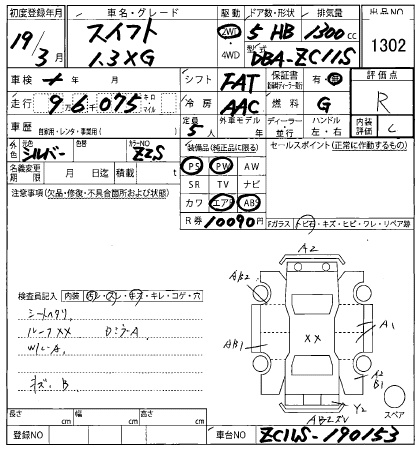 初度登録年月 車名・グレード 駆動 ドア数・形状 排気量 出品NO
19/3月 スイフト 1.3XG 2WD ・4WD 5 HB 1300cc 1302
型式 DBA-ZC11S
車検 年 月 シフト FAT 保証書 有・無 評価点
走行 9万6千075 キロ・マイル 冷房 AAC 燃料 G R
車歴 自家用・レンタ・事業用( ) 定員 5人 外車モデル年 ディーラー・並行 ハンドル 左・右 内装評価 C
外色 元色 シルバー カラーNO Z2S 装備品(純正品に限る) セールスポイント(正常に作動するもの)
名義変更期限 月 日迄 積載 t
PS PW AW
SR TV ナビ
カワ エアB ABS
R券 10090円
注意事項(欠品・修復・不具合箇所および状態)
Fガラス トビ石・キズ・ヒビ・ワレ・リペア跡
検査員記入 内装 汚レ・スレ・キズ・キレ・コゲ・穴
シートヘタリ
ルーフXX
W/L-A
キズ、B
A2
AB2
XX
A1
AB1
A2
B1
Y2
スペア
長さ cm 幅 cm 高さ cm
登録NO 車台NO ZC11S-190153